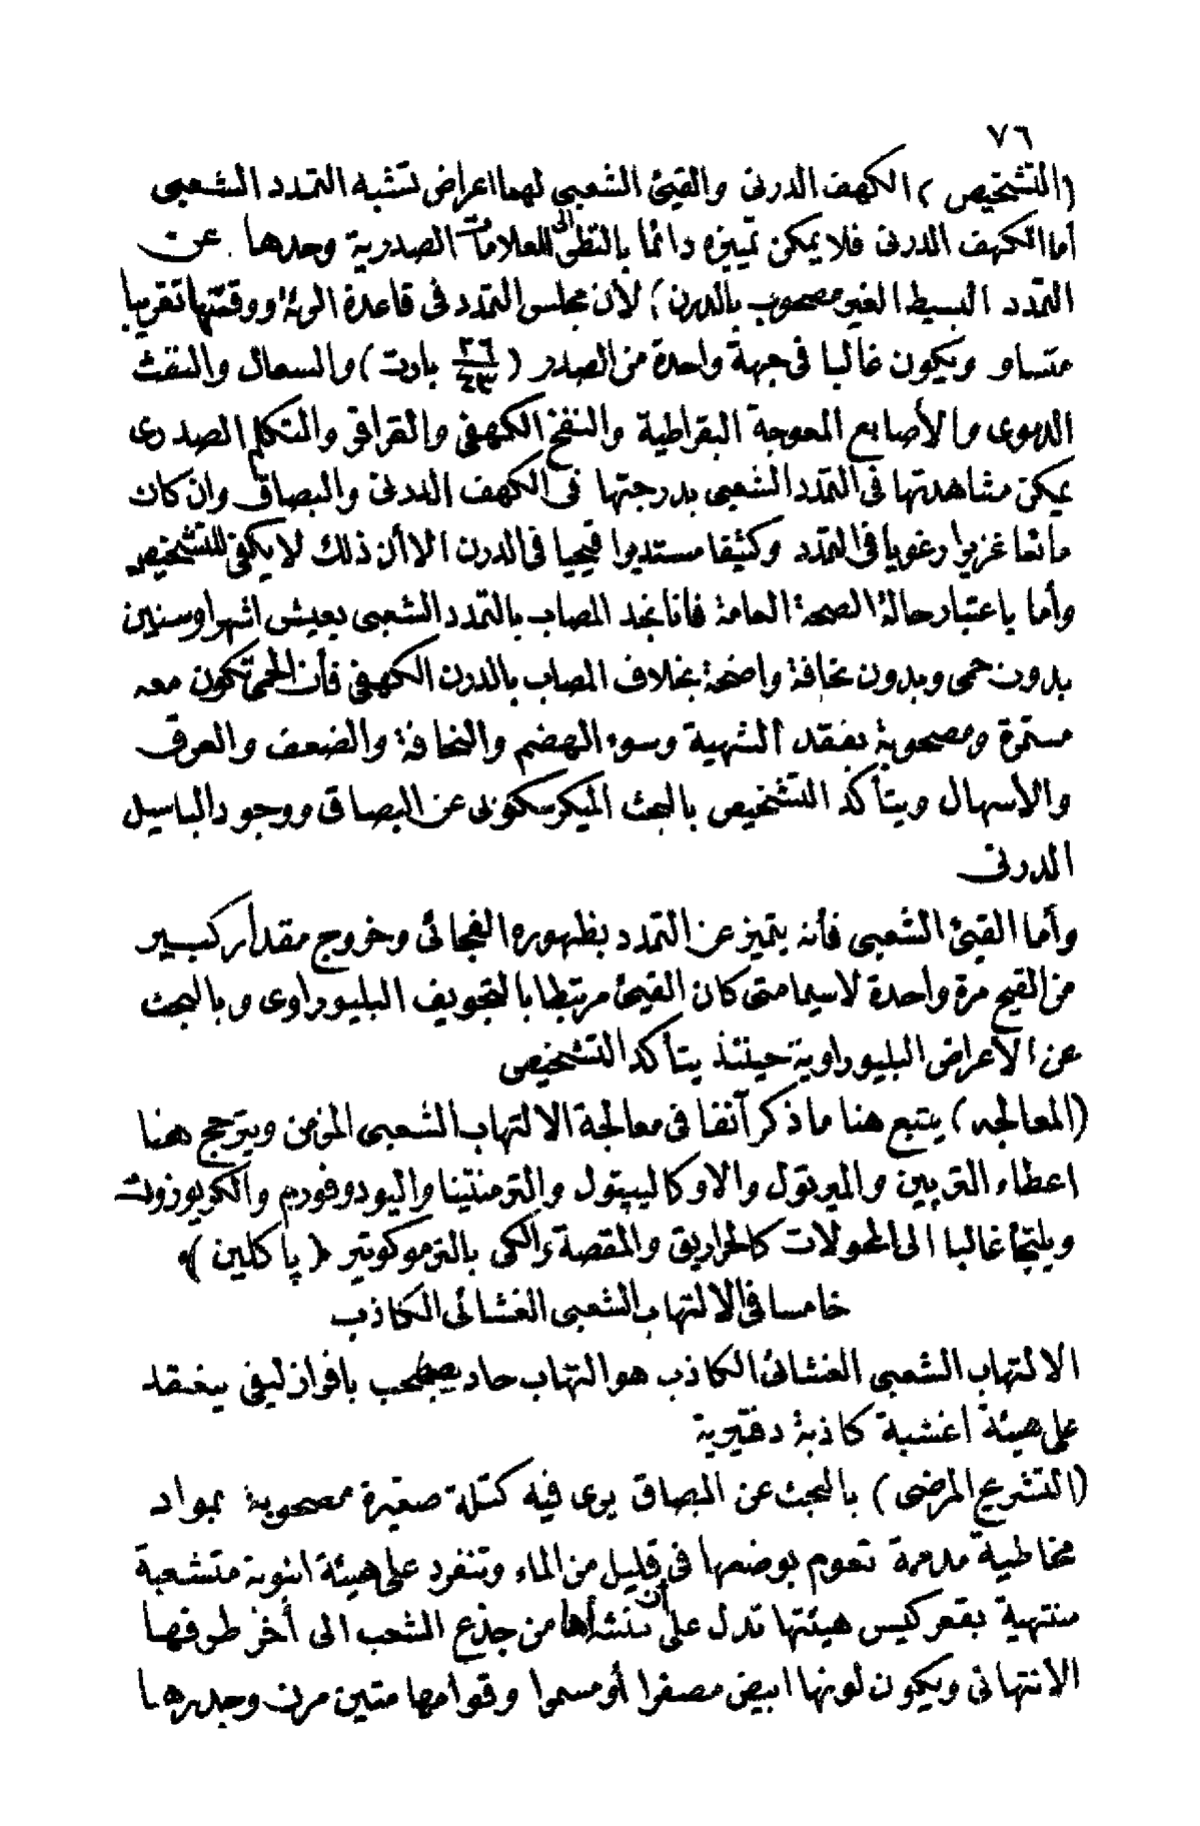 ٧٦
(التشخيص) الكهف الدرنى والقيئ الشعبى لهما اعراض تشبه التمدد الشعبى
أما الكهف الدرنى فلا يمكن تمييزه دائما بالنظر الى العلامات الصدرية وحدها عن
التمدد البسيط الغير مصحوب بالدرن؛ لأن مجلس التمدد فى قاعدة الرئة أو وقمتها تقريبا
متساو ويكون غالبا فى جهة واحدة من الصدر (٢٦/٤٣ بارت) والسعال والنفث
الدموى والأصابع المعوجة البقراطية والنفخ الكهفى والقراقر والتكلم الصدرى
يمكن مشاهدتها فى التمدد الشعبى بدرجتها فى الكهف الدرنى والبصاق وان كان
مائعا غزيرا رغويا فى التمدد وكثيفا مستديرا قيحيا فى الدرن الا أن ذلك لا يكفى للتشخيص
وأما باعتبار حالة الصحة العامة فانا نجد المصاب بالتمدد الشعبى يعيش اشهرا وسنين
بدون حمى وبدون نحافة واضحة بخلاف المصاب بالدرن الكهفى فأن الحمى تكون معه
مستمرة ومصحوبة بفقد الشهية وسوء الهضم والنحافة والضعف والعرق
والأسهال ويتأكد التشخيص بالبحث الميكرسكوبى عن البصاق ووجود الباسيل
الدرنى
وأما القيئ الشعبى فأنه يتميز عن التمدد بظهوره الفجائى وخروج مقدار كبير
من القيح مرة واحدة لاسيما متى كان القيئ مرتبطا بالتجويف البليوراوى وبالبحث
عن الأعراض البليوراوية حينئذ يتأكد التشخيص
(المعالجه) يتبع هنا ما ذكر آنفا فى معالجة الالتهاب الشعبى المزمن ويترجح هنا
اعطاء التربين والميرتول والاوكاليپتول والترمنتينا واليودوفورم والكريوزوت
ويلتجأ غالبا الى المحولات كالحراريق والمقصة والكى بالترموكوتير (پاكلين)
خامسا فى الالتهاب الشعبى الغشائى الكاذب
الالتهاب الشعبى الغشائى الكاذب هو التهاب حاد يصطحب بافراز ليفى ينعقد
على هيئة اغشية كاذبة دفتيرية
(التشريح المرضى) بالبحث عن البصاق يرى فيه كتلة صغيرة مصحوبة بمواد
مخاطية مدممة تعوم بوضعها فى قليل من الماء وتنفرد على هيئة انبوبة متشعبة
منتهية بقعر كيس هيئتها تدل على أن منشأها من جذع الشعب الى أخر طرفها
الانتهائى ويكون لونها ابيض مصفرا أو مسمرا وقوامها متين مرن وجدرها